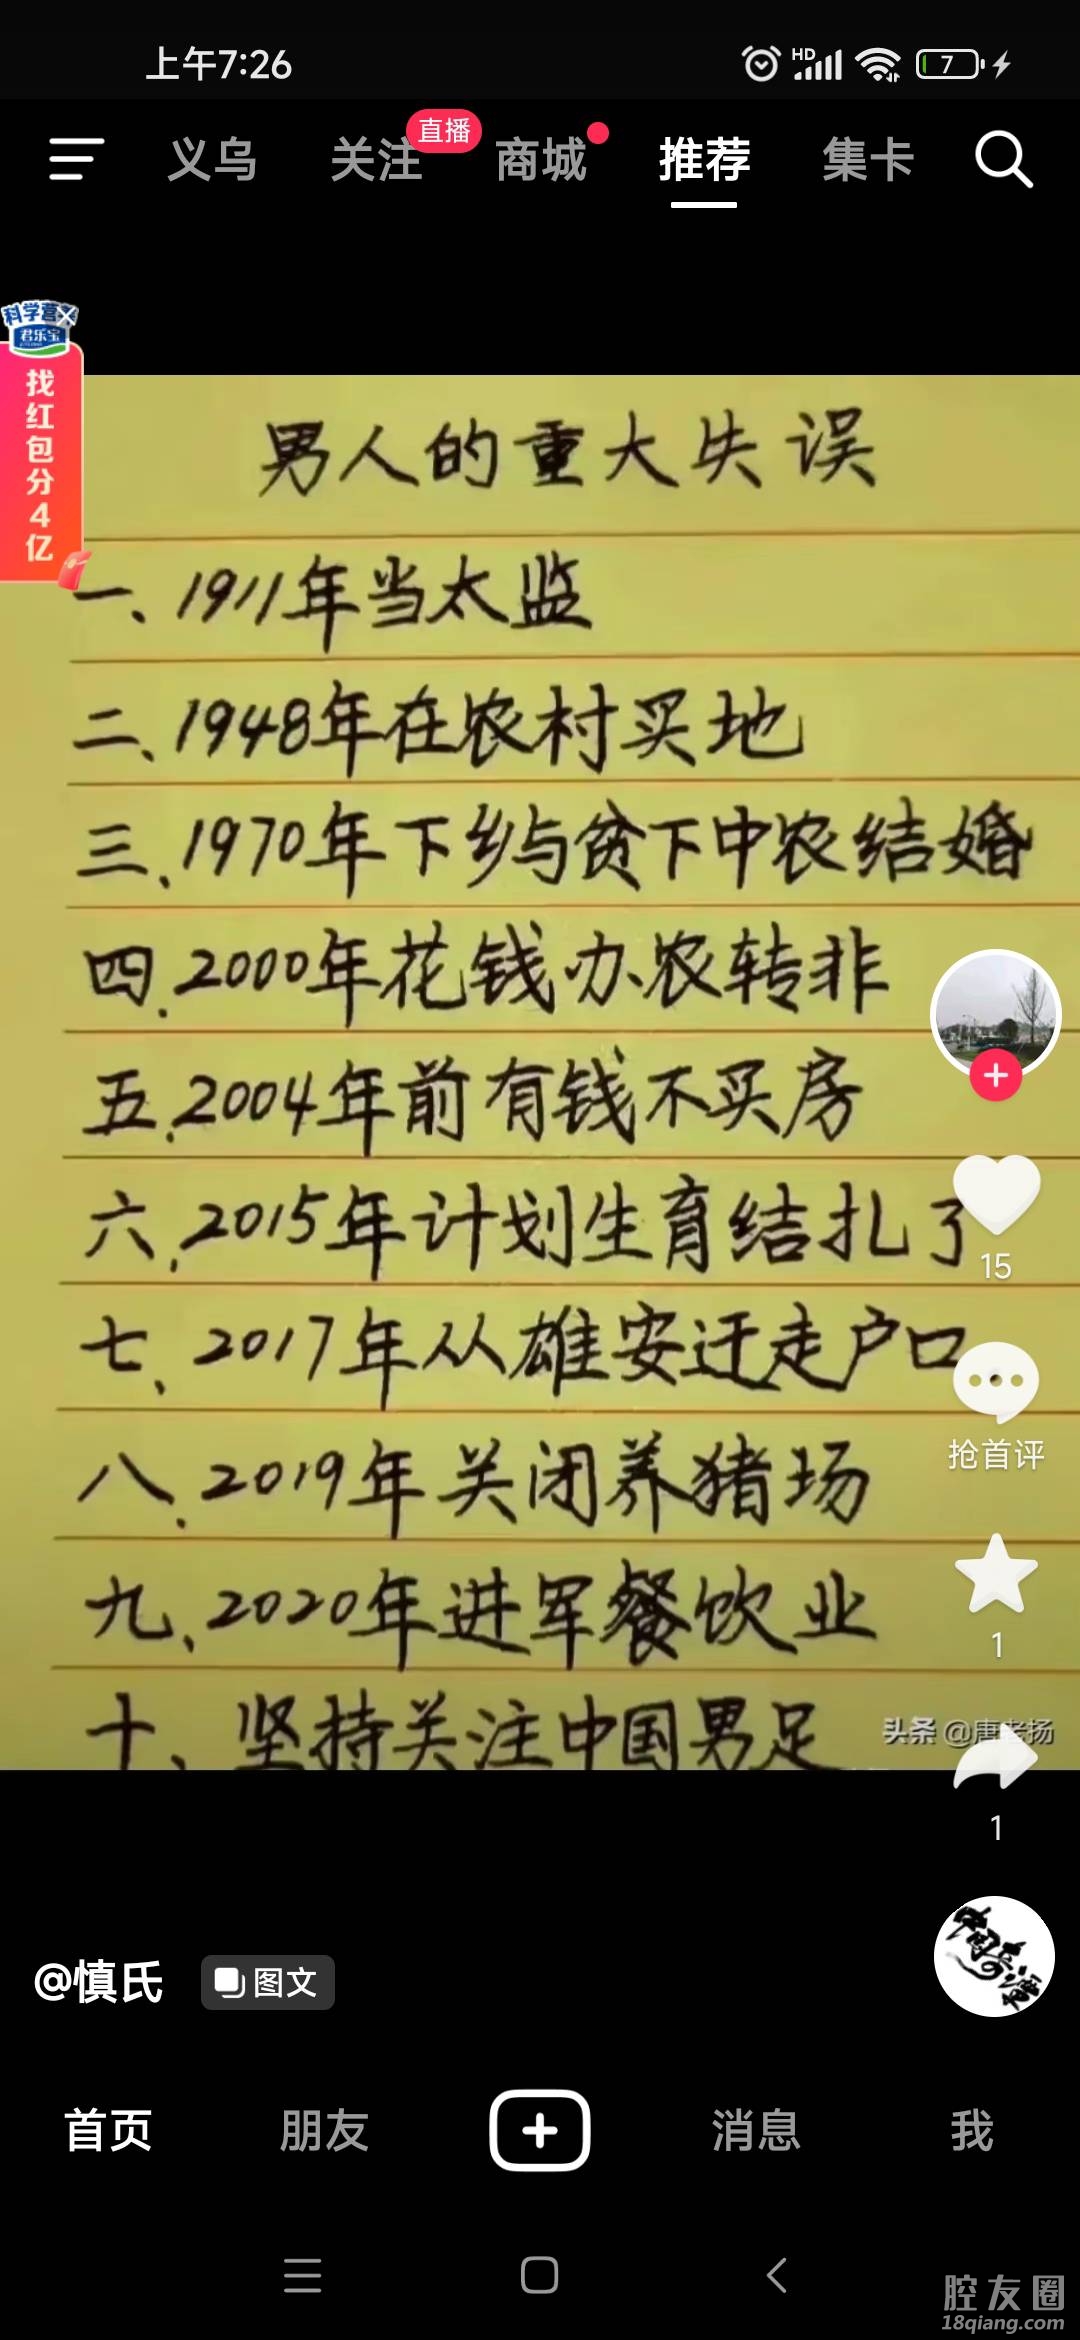 上午7:26
HD
7
义乌
关注
直播
商城
推荐
集卡
科学营养
君乐宝
找红包分4亿
男人的重大失误
一、1911年当太监
二、1948年在农村买地
三、1970年下乡与贫下中农结婚
四.2000年花钱办农转非
五.2004年前有钱不买房
六.2015年计划生育结扎了
七、2017年从雄安迁走户口
八.2019年关闭养猪场
九、2020年进军餐饮业
十、坚持关注中国男足
头条 @唐老扬
15
抢首评
1
1
@慎氏
图文
首页
朋友
消息
我
腔友圈
18qiang.com